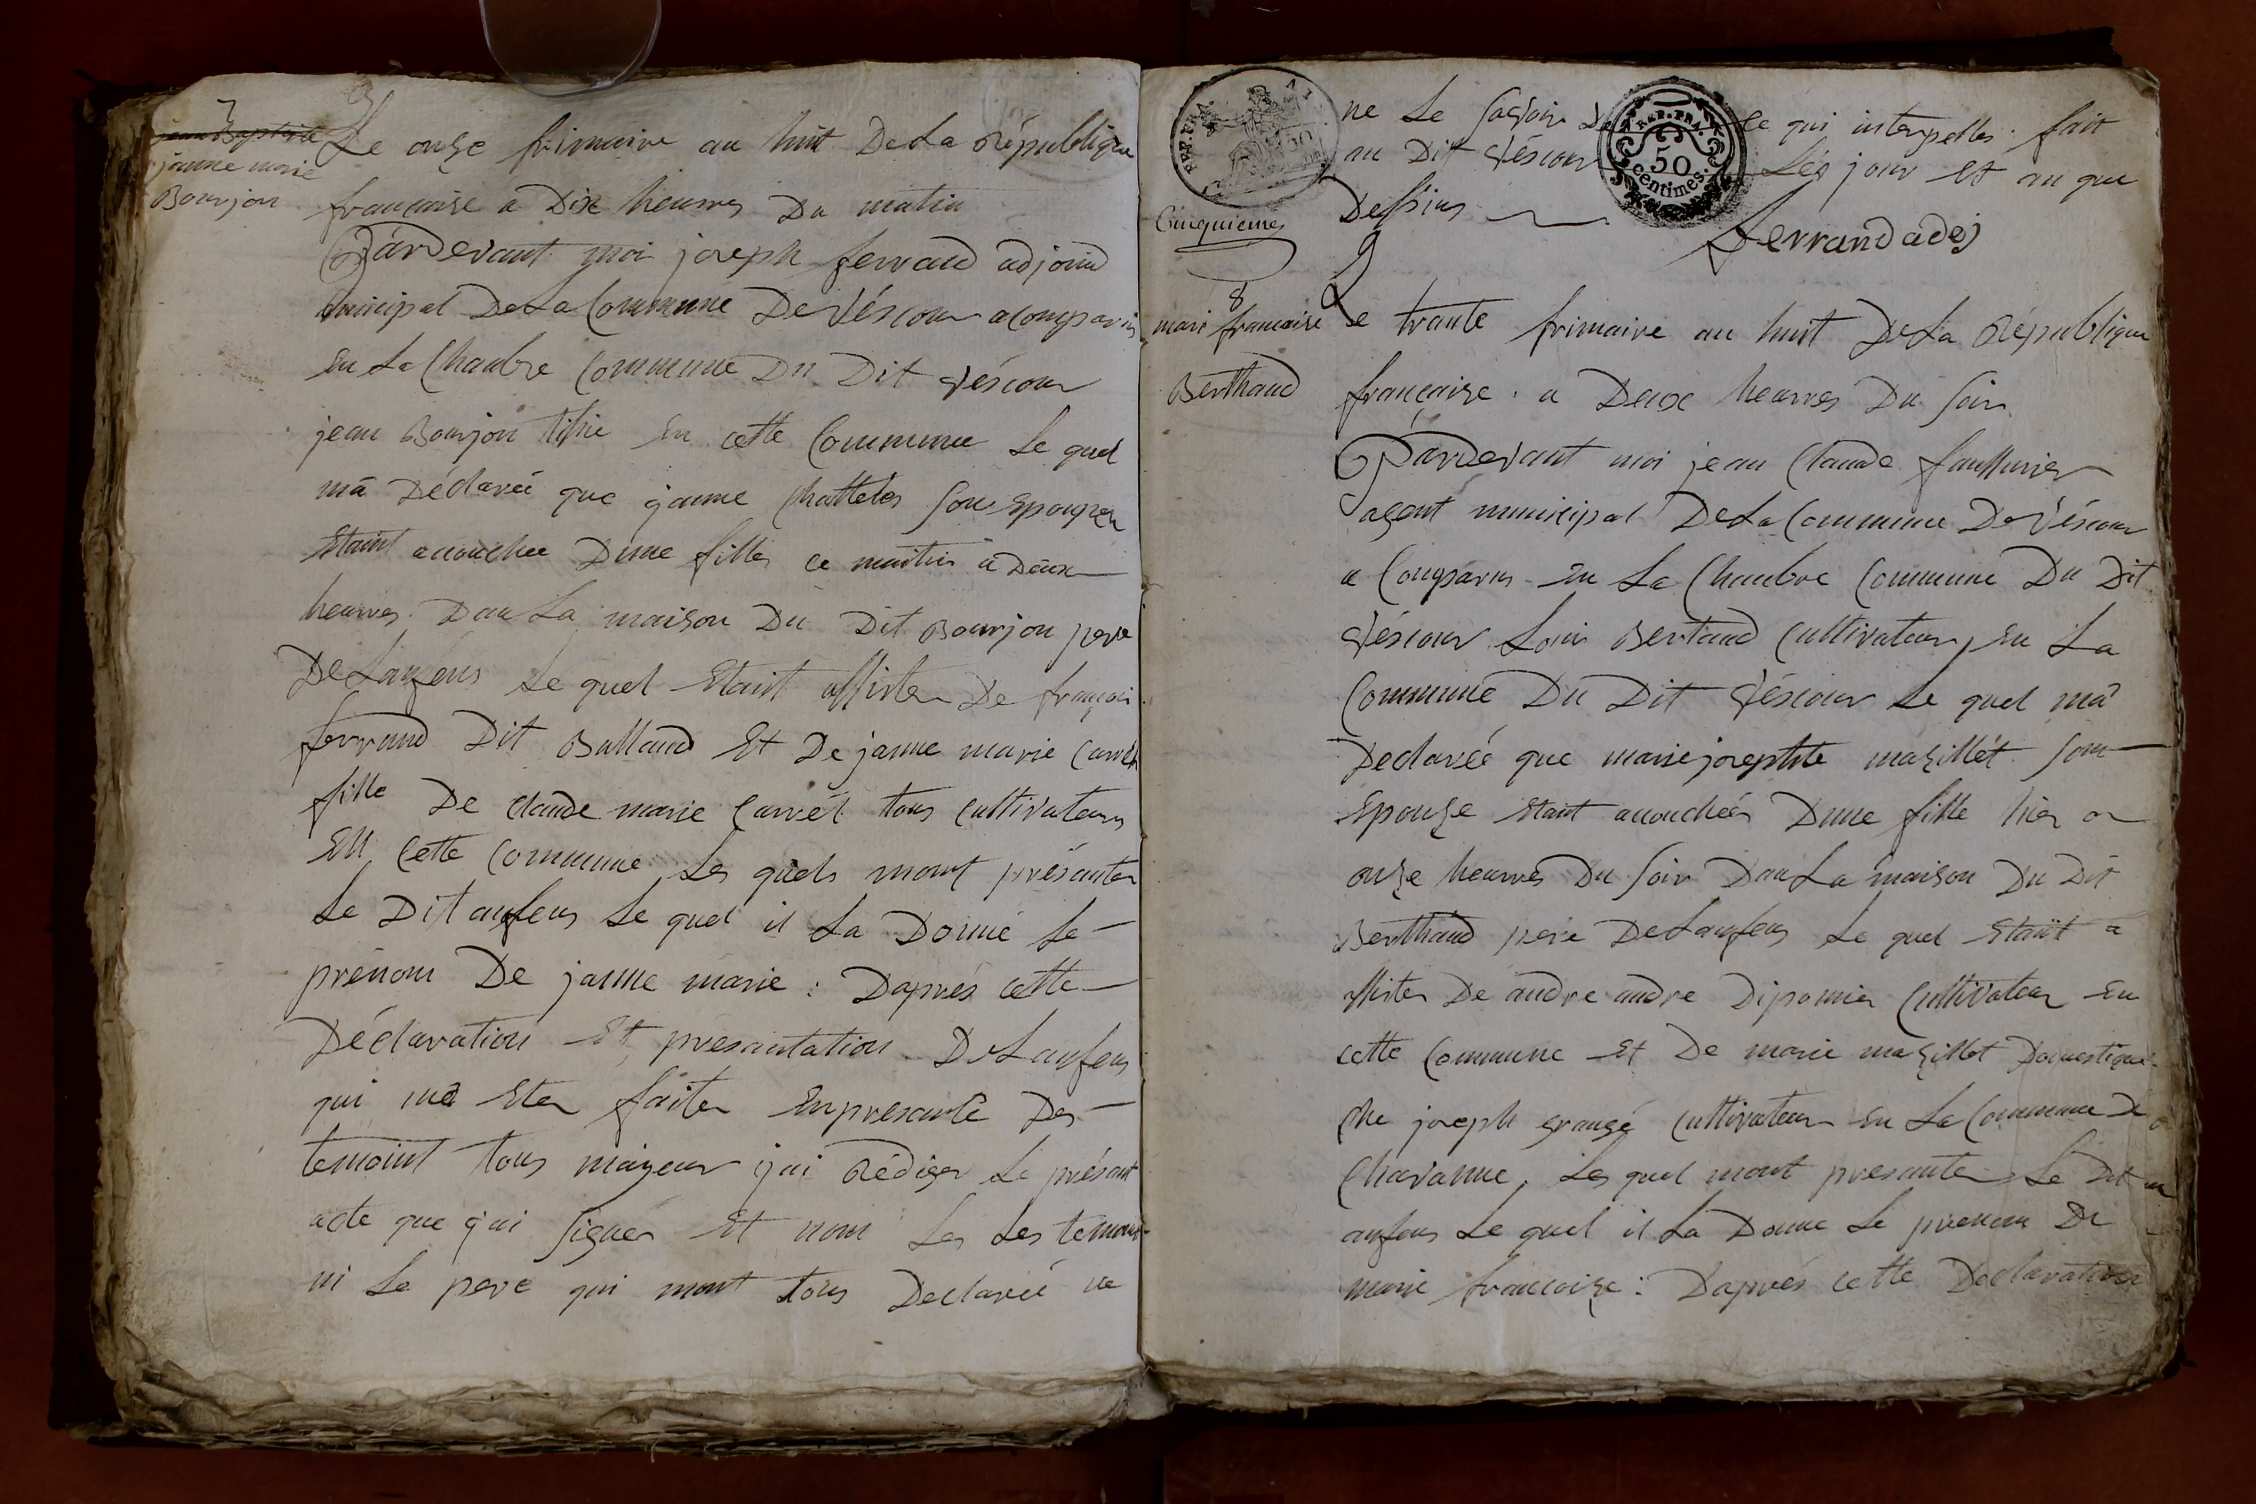 7
jean Baptiste
janne marie
Bourjon
Le onze frimaire an huit De La République
francaise a Dix heures Du matin
Pardevant moi joseph ferrand adjoind
municipal De La Commune De Véscour a comparus
En La Chambre Commune Du Dit Véscour
jean Bourjon tissie En cette Commune Le quel
mà Déclareé que janne Chattelet son Epouzen
Etaint accouchee Dune filles ce mattin à Deux
heurres Dan La maison Du Dit Bourjon pere
De Lanfens Le quel Etait assister De françois
ferrand Dit Balland Et De janne marie Carrét
fille De claude marie Carrét tous Cultivateurs
En Cette Commune Les quels mont présanter
Le Dit anfens Le quel il La Donné Le
prénom De janne marie : Daprés cette
Déclaration Et presantation De Lanfens
qui mà Eter faiter En presante Des
temoint tous mayeur jai Rédiger Le présant
acte que jai signer Et nom Les Les temoint
ni Le pere qui mont tous Declareé ne
REP. FRA.
Cinquieme
ne Le sasvoir De ce qui interpelles. fait
au Dit Véscour Les jour Et an que
Dessus
REP. FRA.
50
centimes.
Ferrand adej
8
mari francaise
Berthaud
Le trante frimaire an huit De La République
française. a Deux heurres Du soir
Pardevant moi jean Claude faussurier
agent municipal De La Commune De Véscour
a Comparus En La Chambre Commune Du Dit
Véscour Louis Bertaud Cultivateur En La
Commune Du Dit Véscour Le quel mà
Declareé que marie josephte mazillét son
Epouze Etant accouchées Dune fille hier a
onze heurres Du soir Dan La maison Du Dit
Berthaud pere De Lanfens Le quel Etaiit a
ssister De andre andre Diponnier Cultivateur En
cette Commune Et De marie mazillet Domestique
Che joseph grangé Cultivateur En La Commune De
Chavanne, Les quel mont presanter Le Dit
anfens Le quel il La Donne Le prenom De
marie francoize : Daprés cette Declaration